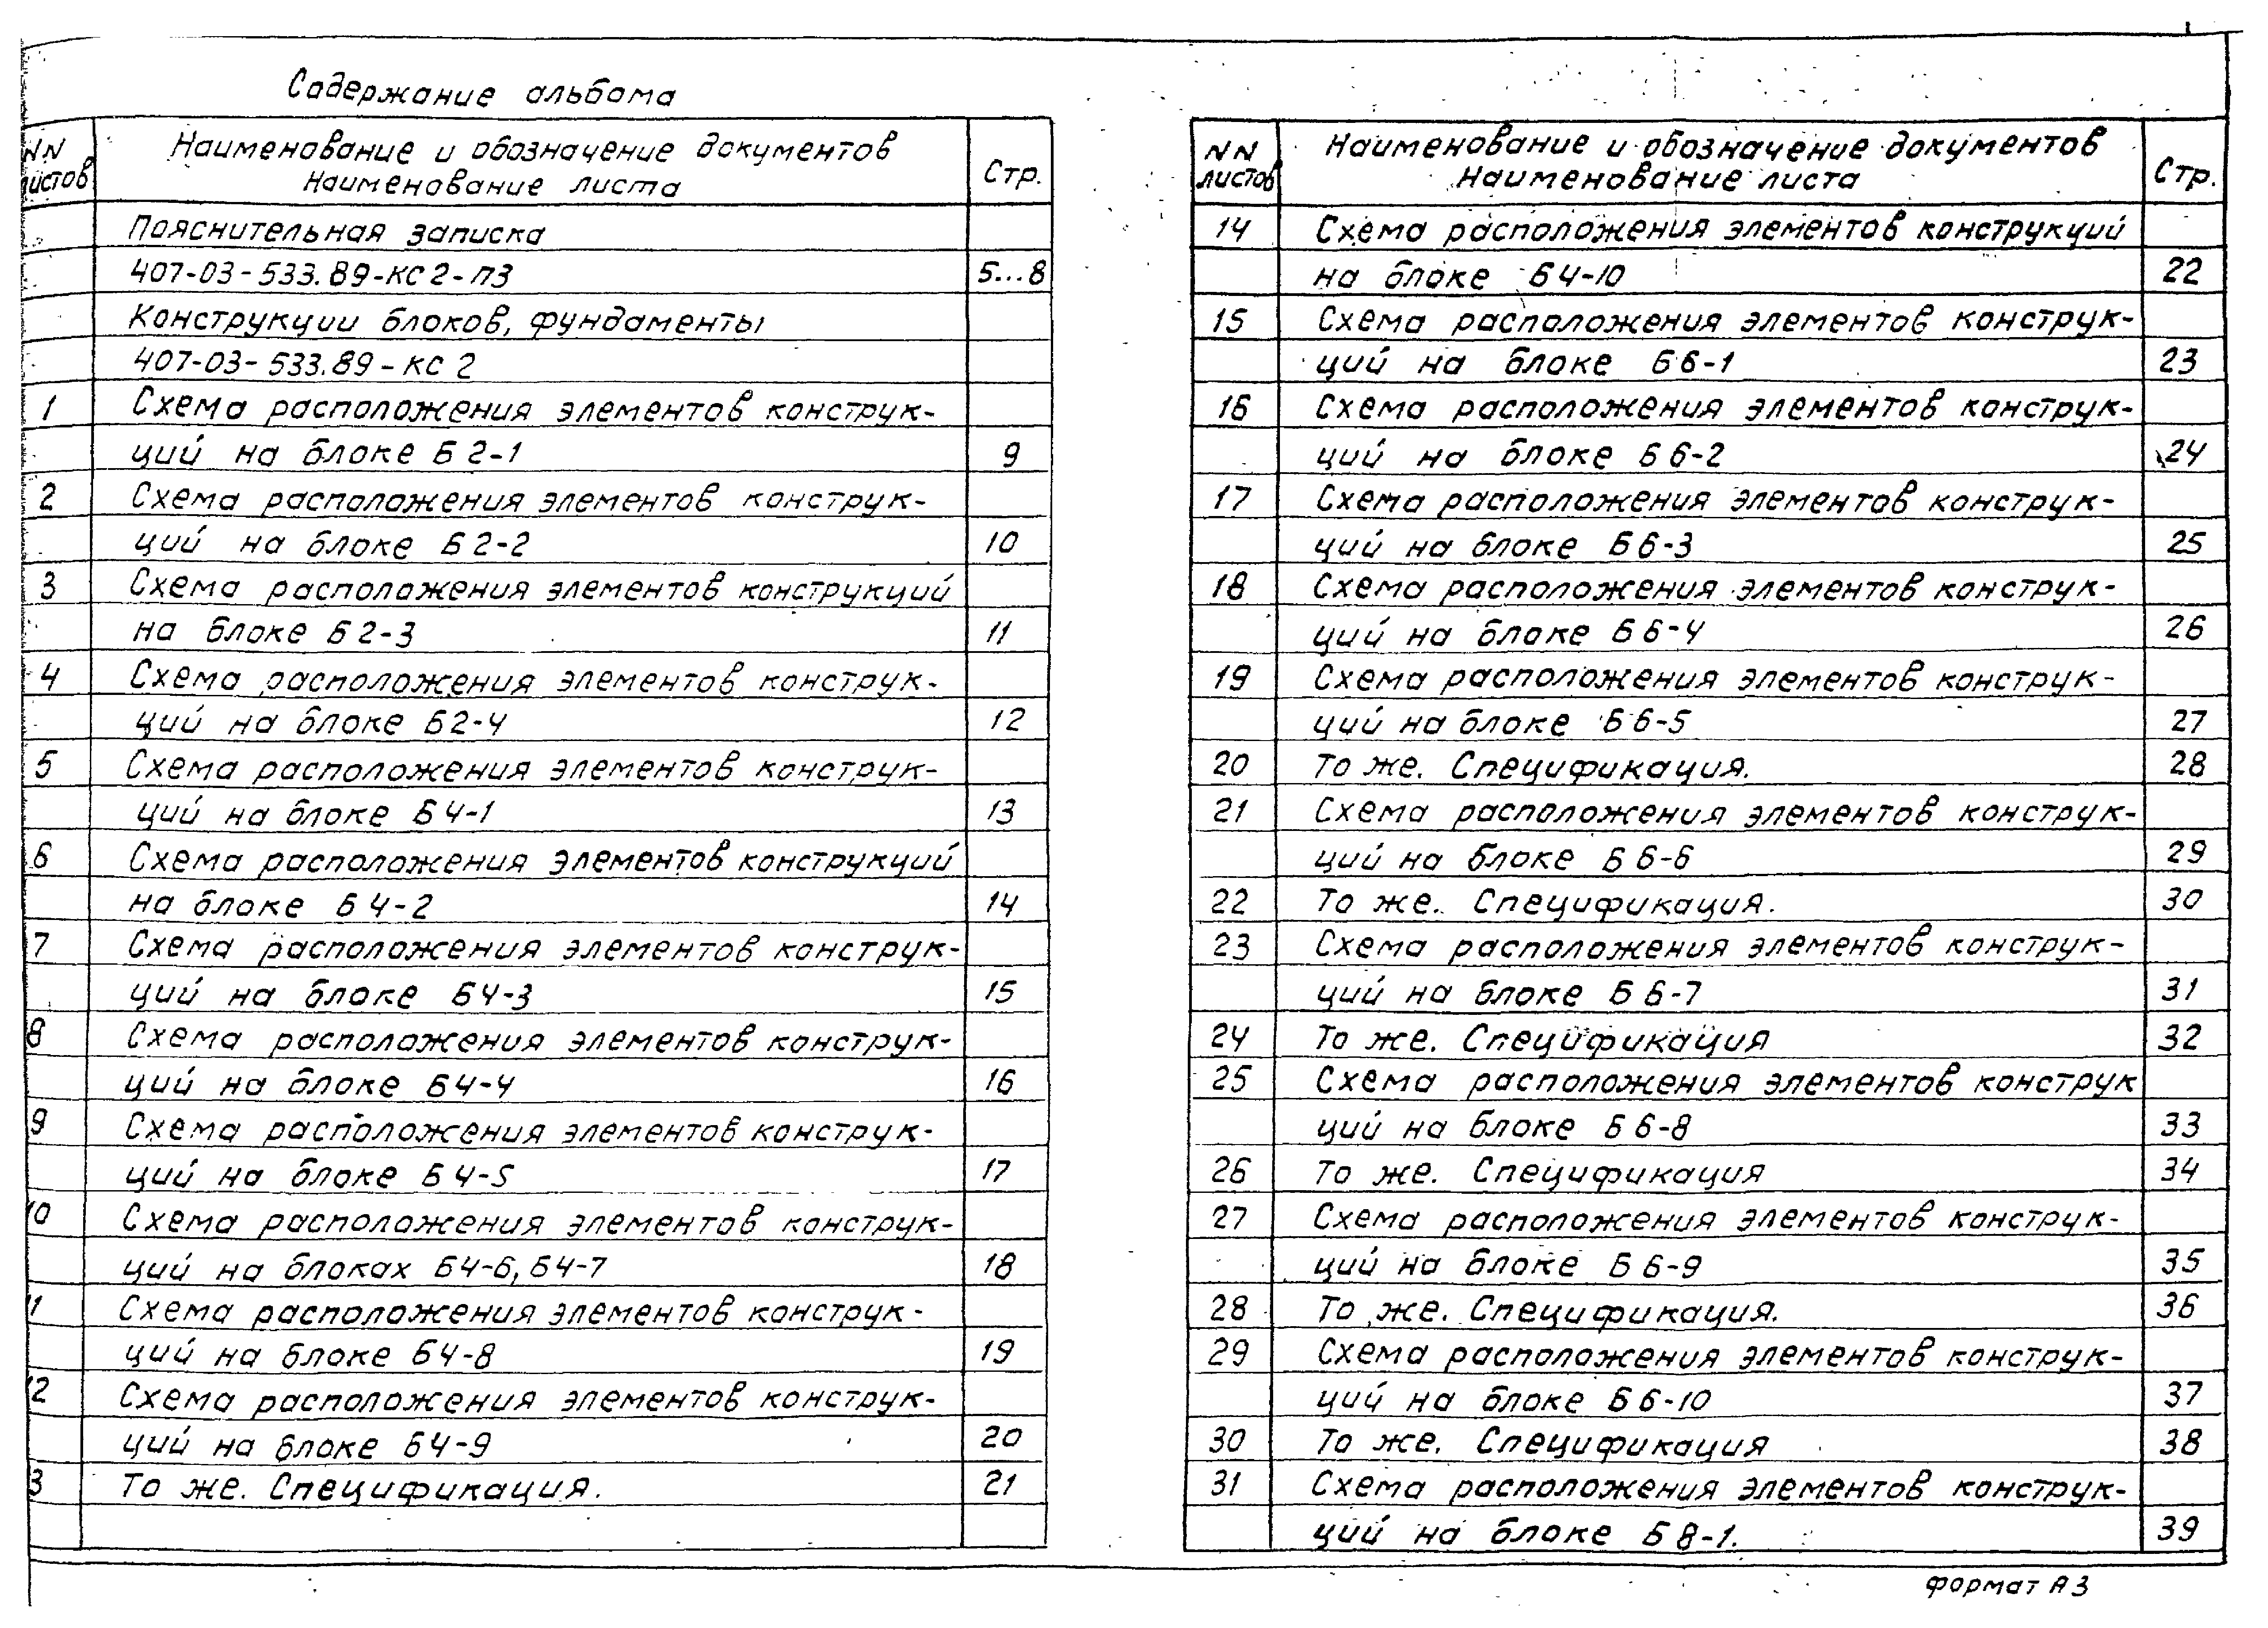 Содержание альбома
NN Наименование и обозначение документов Стр.
листов Наименование листа
Пояснительная записка
407-03-533.89-КС2-ПЗ 5...8
Конструкции блоков, фундаменты
407-03-533.89-КС2
1 Схема расположения элементов конструк-
ций на блоке Б2-1 9
2 Схема расположения элементов конструк-
ций на блоке Б2-2 10
3 Схема расположения элементов конструкций
на блоке Б2-3 11
4 Схема расположения элементов конструк-
ций на блоке Б2-4 12
5 Схема расположения элементов конструк-
ций на блоке Б4-1 13
6 Схема расположения элементов конструкций
на блоке Б4-2 14
7 Схема расположения элементов конструк-
ций на блоке Б4-3 15
8 Схема расположения элементов конструк-
ций на блоке Б4-4 16
9 Схема расположения элементов конструк-
ций на блоке Б4-5 17
10 Схема расположения элементов конструк-
ций на блоках Б4-6, Б4-7 18
11 Схема расположения элементов конструк-
ций на блоке Б4-8 19
12 Схема расположения элементов конструк-
ций на блоке Б4-9 20
3 То же. Спецификация. 21
NN Наименование и обозначение документов Стр.
листов Наименование листа
14 Схема расположения элементов конструкций
на блоке Б4-10 22
15 Схема расположения элементов конструк-
ций на блоке Б6-1 23
16 Схема расположения элементов конструк-
ций на блоке Б6-2 24
17 Схема расположения элементов конструк-
ций на блоке Б6-3 25
18 Схема расположения элементов конструк-
ций на блоке Б6-4 26
19 Схема расположения элементов конструк-
ций на блоке Б6-5 27
20 То же. Спецификация. 28
21 Схема расположения элементов конструк-
ций на блоке Б6-6 29
22 То же. Спецификация. 30
23 Схема расположения элементов конструк-
ций на блоке Б6-7 31
24 То же. Спецификация 32
25 Схема расположения элементов конструк
ций на блоке Б6-8 33
26 То же. Спецификация 34
27 Схема расположения элементов конструк-
ций на блоке Б6-9 35
28 То же. Спецификация. 36
29 Схема расположения элементов конструк-
ций на блоке Б6-10 37
30 То же. Спецификация 38
31 Схема расположения элементов конструк-
ций на блоке Б8-1. 39
формат А3